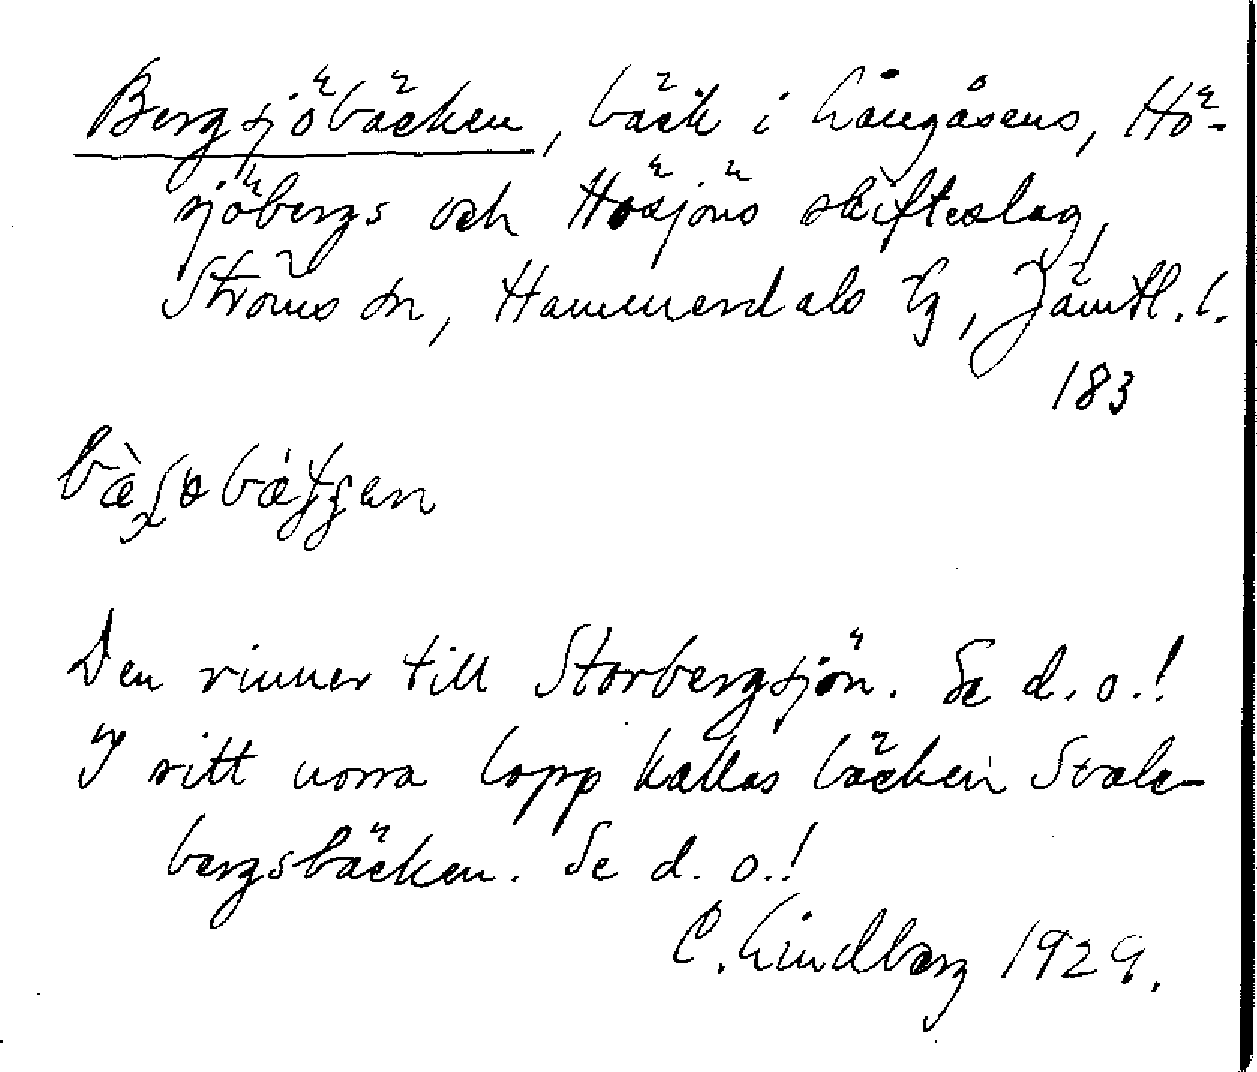 Bergsjöbäcken, bäck i Långåsens, Hö-
sjöbergs och Hösjöns skifteslag,
Ströms sn, Hammerdals tg, Jämtl. l.
183
Den rinner till Storbergsjön. Se d. o.!
I sitt norra lopp kallas bäcken Svale-
bergsbäcken. Se d. o.!
C. Lindberg 1929.